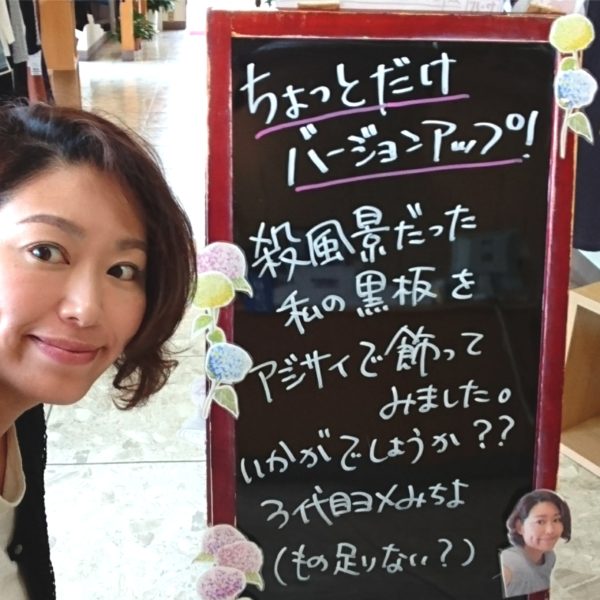 ちょっとだけ
バージョンアップ!
殺風景だった
私の黒板を
アジサイで飾って
みました。
いかがでしょうか??
3代目ヨメみちよ
(もの足りない?)